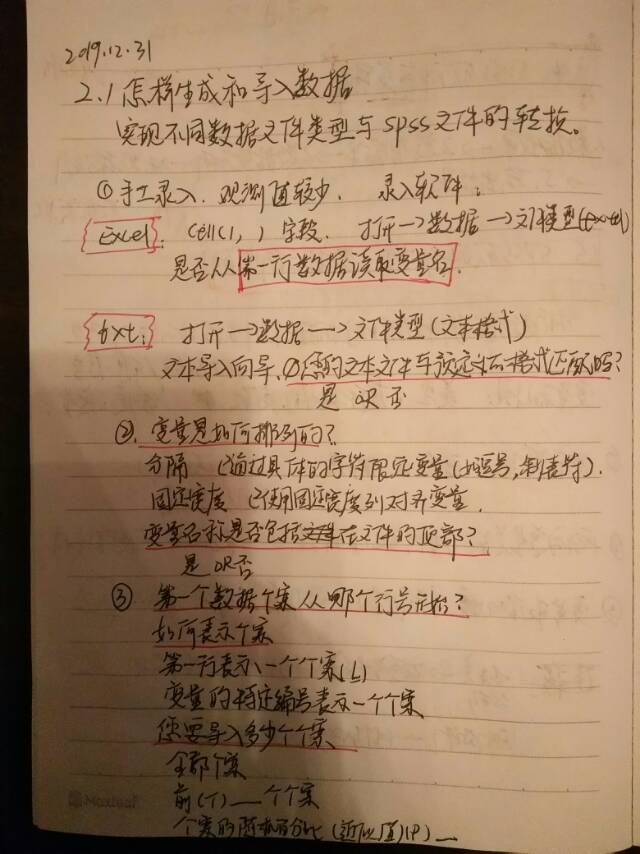 2019.12.31
2.1 怎样生成和导入数据
实现不同数据文件类型与spss文件的转换。
①手工录入. 观测值较少. 录入软件:
Excel: Cell(1, ) 字段. 打开→数据→文件类型
是否从第一行数据读取变量名.
txt: 打开→数据→文件类型(文本格式)
文本导入向导、①您的文本文件与预定义的格式匹配吗?
是 OR 否
②. 变量是如何排列的?
分隔 (通过具体的字符限定变量(如逗号,制表符).
固定宽度 使用固定宽度列对齐变量.
变量名称是否包括在文件的顶部?
是 OR 否
③ 第一个数据个案从哪个行号开始?
如何表示个案
第一行表示一个个案(L)
变量的特定编号表示一个个案
您要导入多少个个案
全部个案
前(T) __ 个个案
个案的随机百分比(近似值)(P) __
Maxleaf